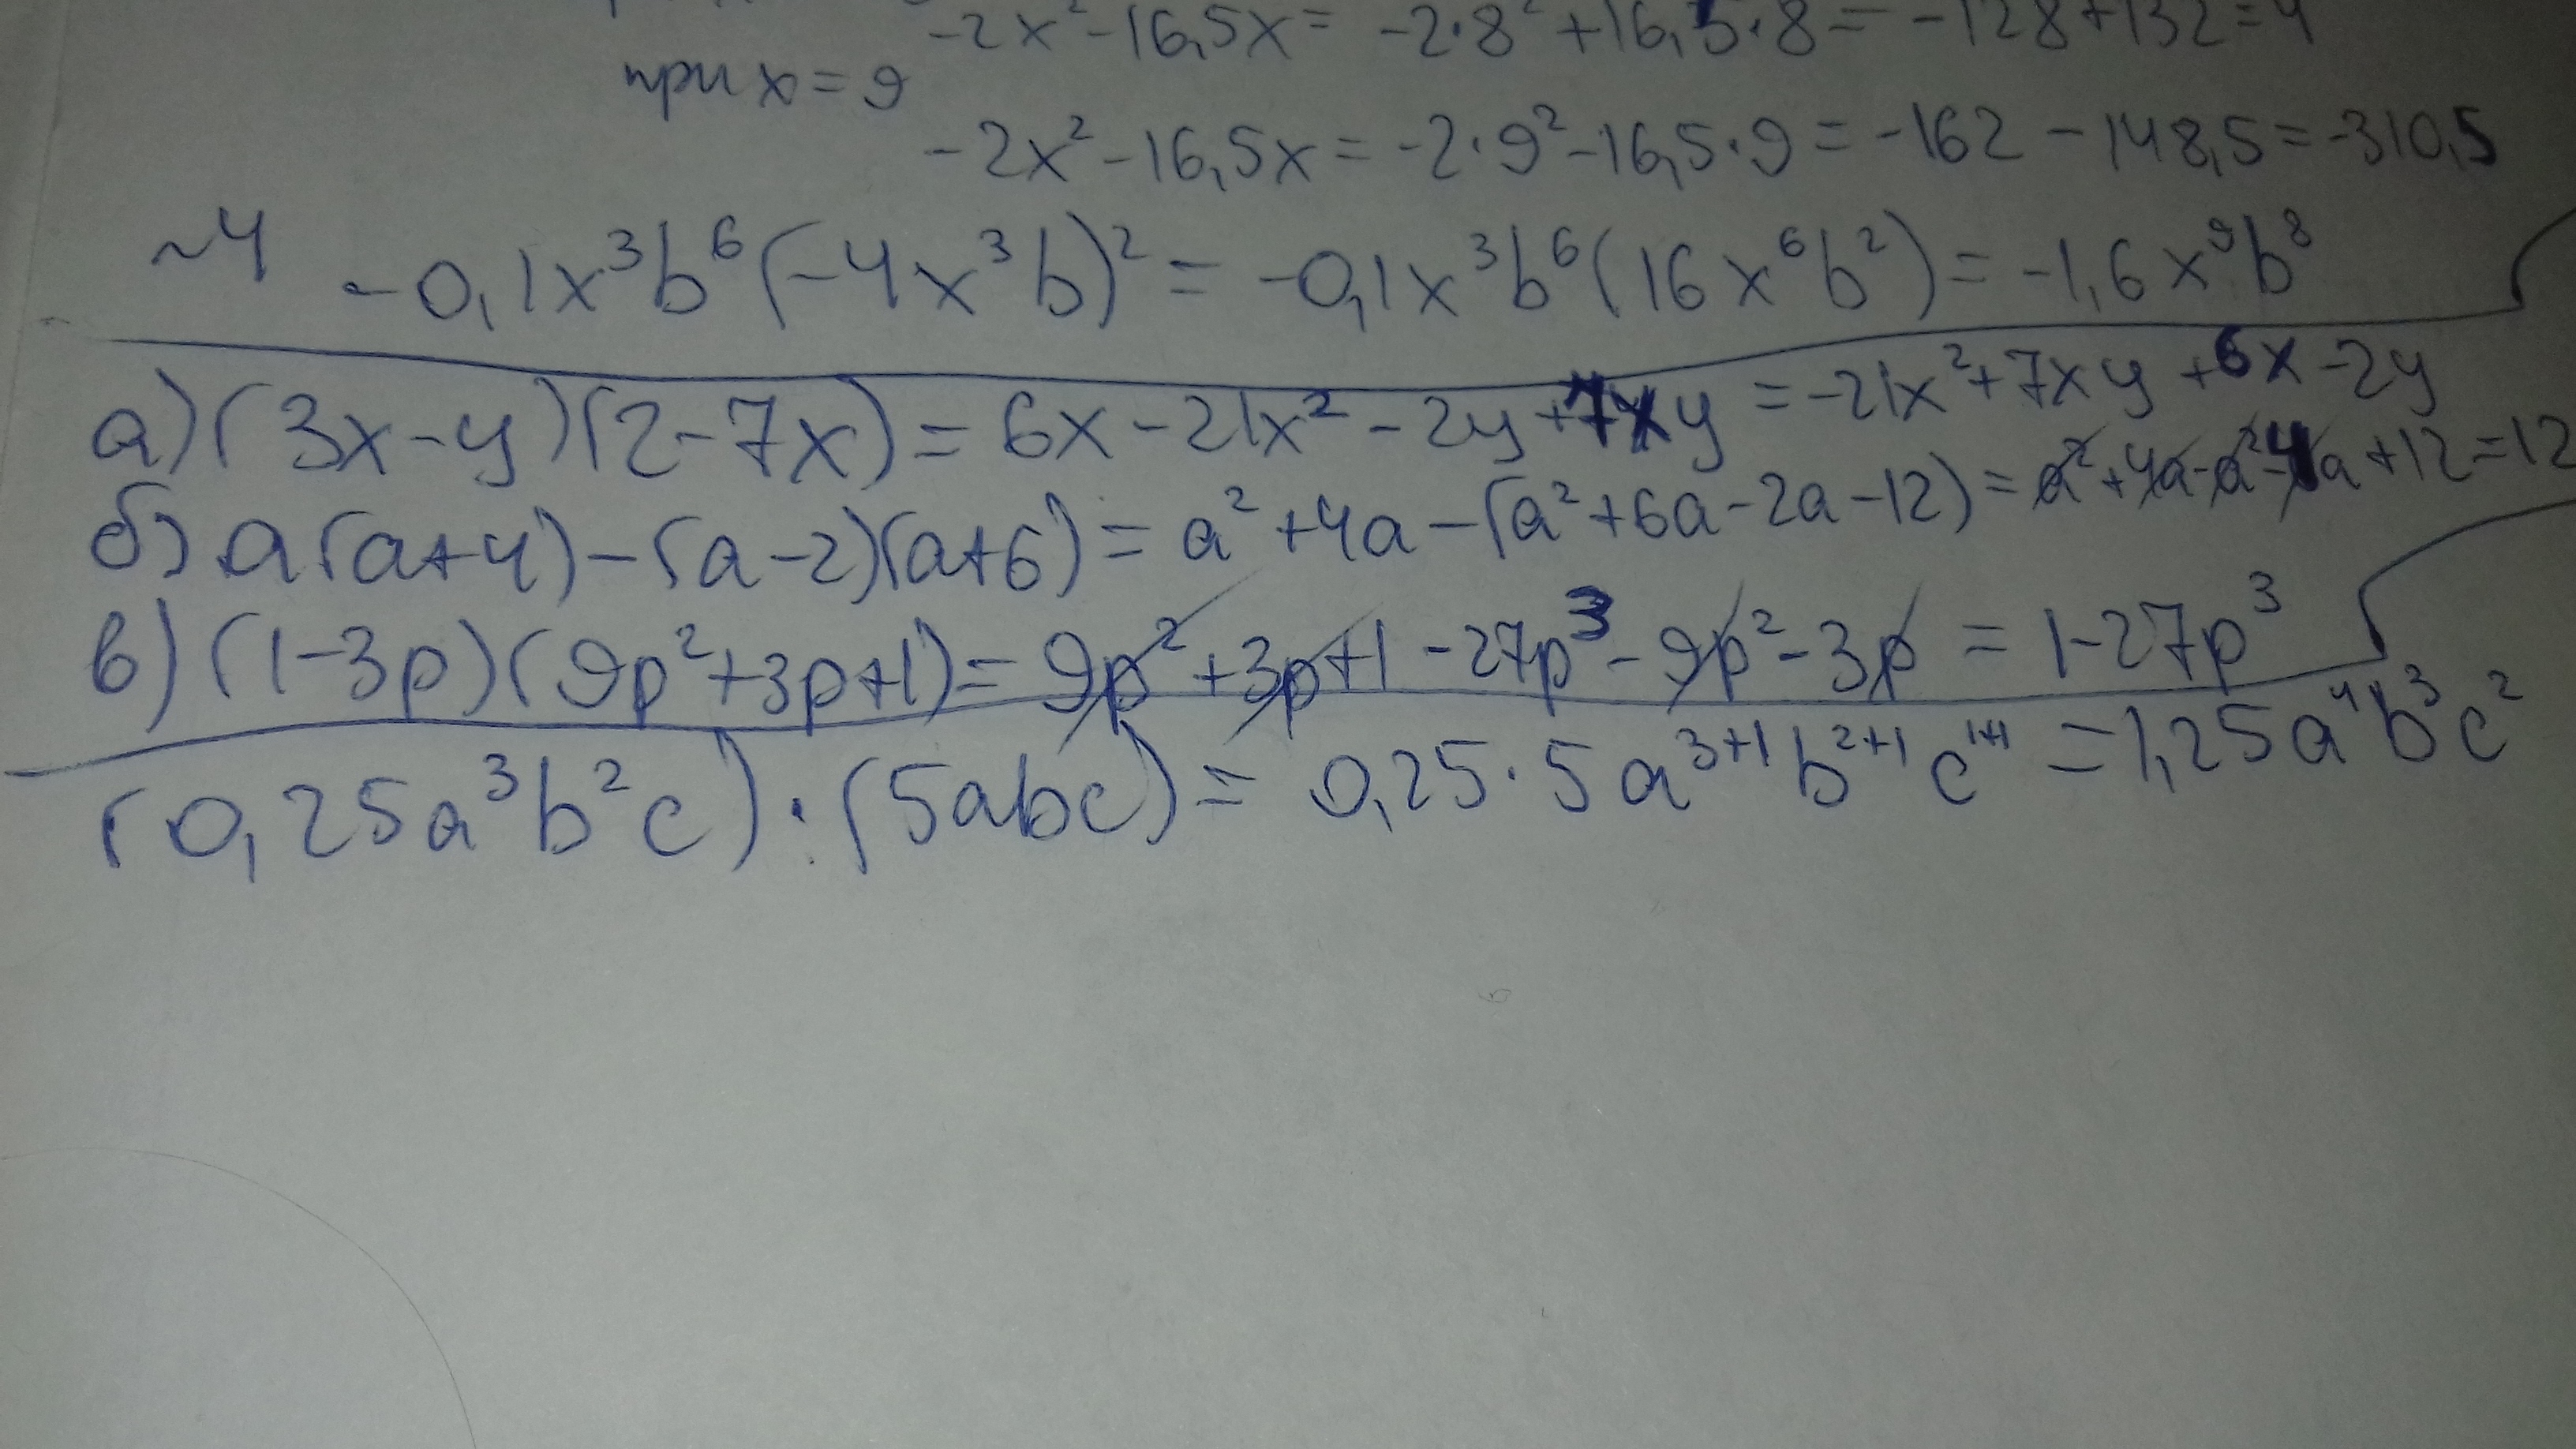 -2x²-16,5x= -2·8²+16,5·8= -128+132=4
при x=9
-2x²-16,5x=-2·9²-16,5·9=-162-148,5=-310,5
~4 -0,1x³b⁶(-4x³b)²=-0,1x³b⁶(16x⁶b²)=-1,6x⁹b⁸
а)(3x-y)(2-7x)=6x-21x²-2y+7xy=-21x²+7xy+6x-2y
б) a(a+4)-(a-2)(a+6)=a²+4a-(a²+6a-2a-12)=a²+4a-a²-4a+12=12
в)(1-3p)(9p²+3p+1)=9p²+3p+1-27p³-9p²-3p=1-27p³
(0,25a³b²c)·(5abc)=0,25·5a³⁺¹b²⁺¹c¹⁺¹=1,25a⁴b³c²